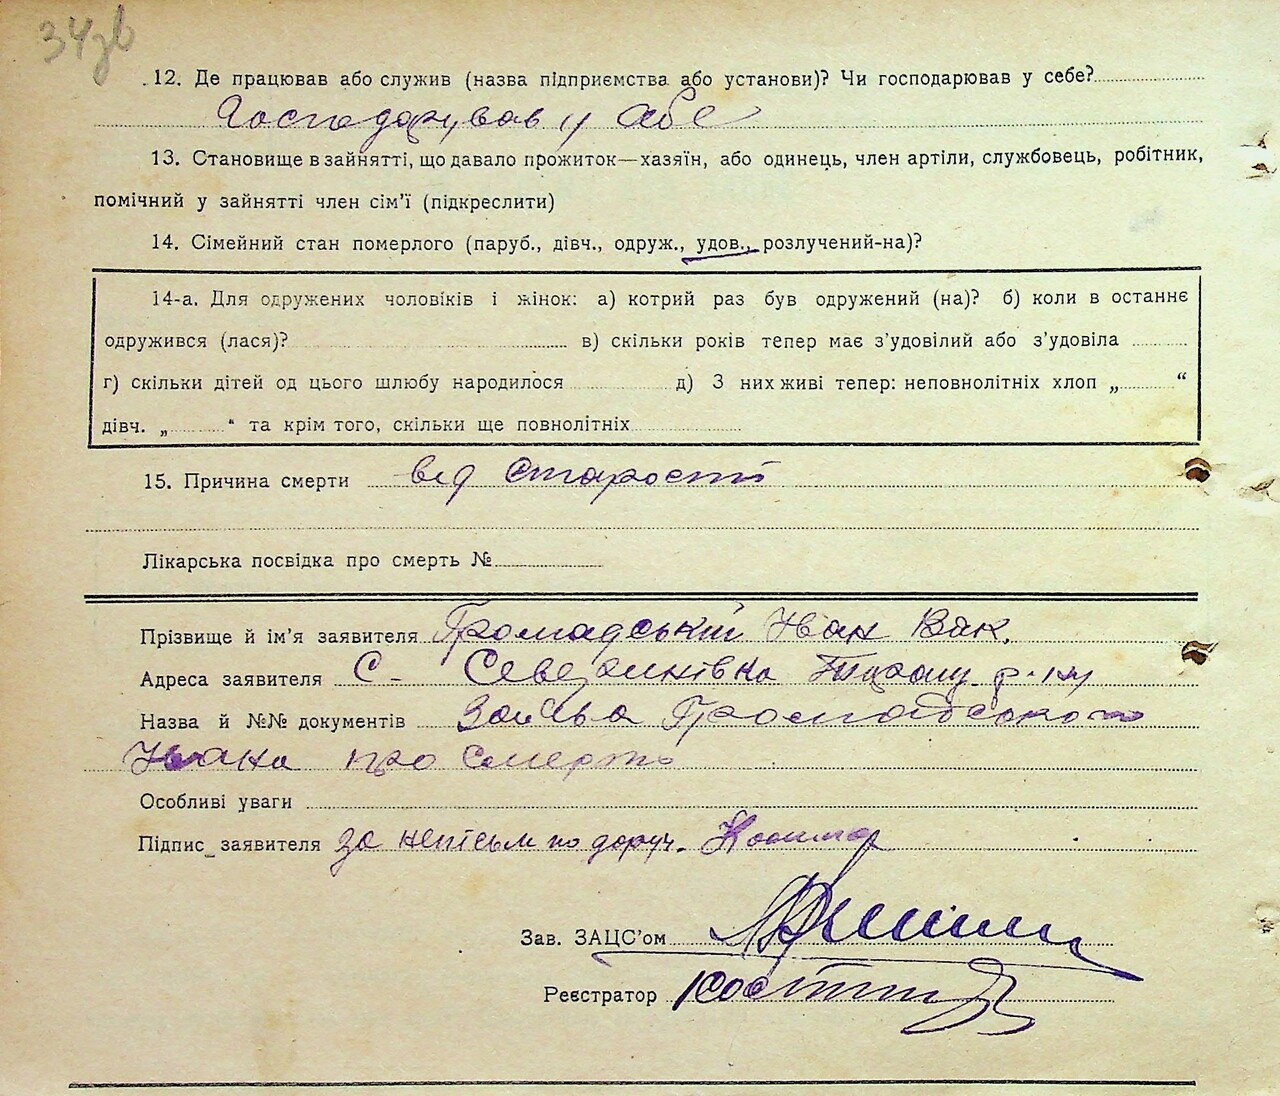 34зв
12. Де працював або служив (назва підприємства або установи)? Чи господарював у себе?
Господарував у себе
13. Становище в зайнятті, що давало прожиток—хазяїн, або одинець, член артіли, службовець, робітник,
помічний у зайнятті член сім'ї (підкреслити)
14. Сімейний стан померлого (паруб., дівч., одруж., удов., розлучений-на)?
14-а. Для одружених чоловіків і жінок: а) котрий раз був одружений (на)? б) коли в останнє
одружився (лася)? в) скільки років тепер має з'удовілий або з'удовіла
г) скільки дітей од цього шлюбу народилося д) З них живі тепер: неповнолітніх хлоп „ “
дівч. „ “ та крім того, скільки ще повнолітніх
15. Причина смерти від старости
Лікарська посвідка про смерть №
Прізвище й ім'я заявителя Громадський Іван Вак.
Адреса заявителя С- Северинівка р-ну
Назва й №№ документів Заява Громадського
Івана про смерть
Особливі уваги
Підпис заявителя за неписьм по доруч.
Зав. ЗАЦС'ом
Реєстратор